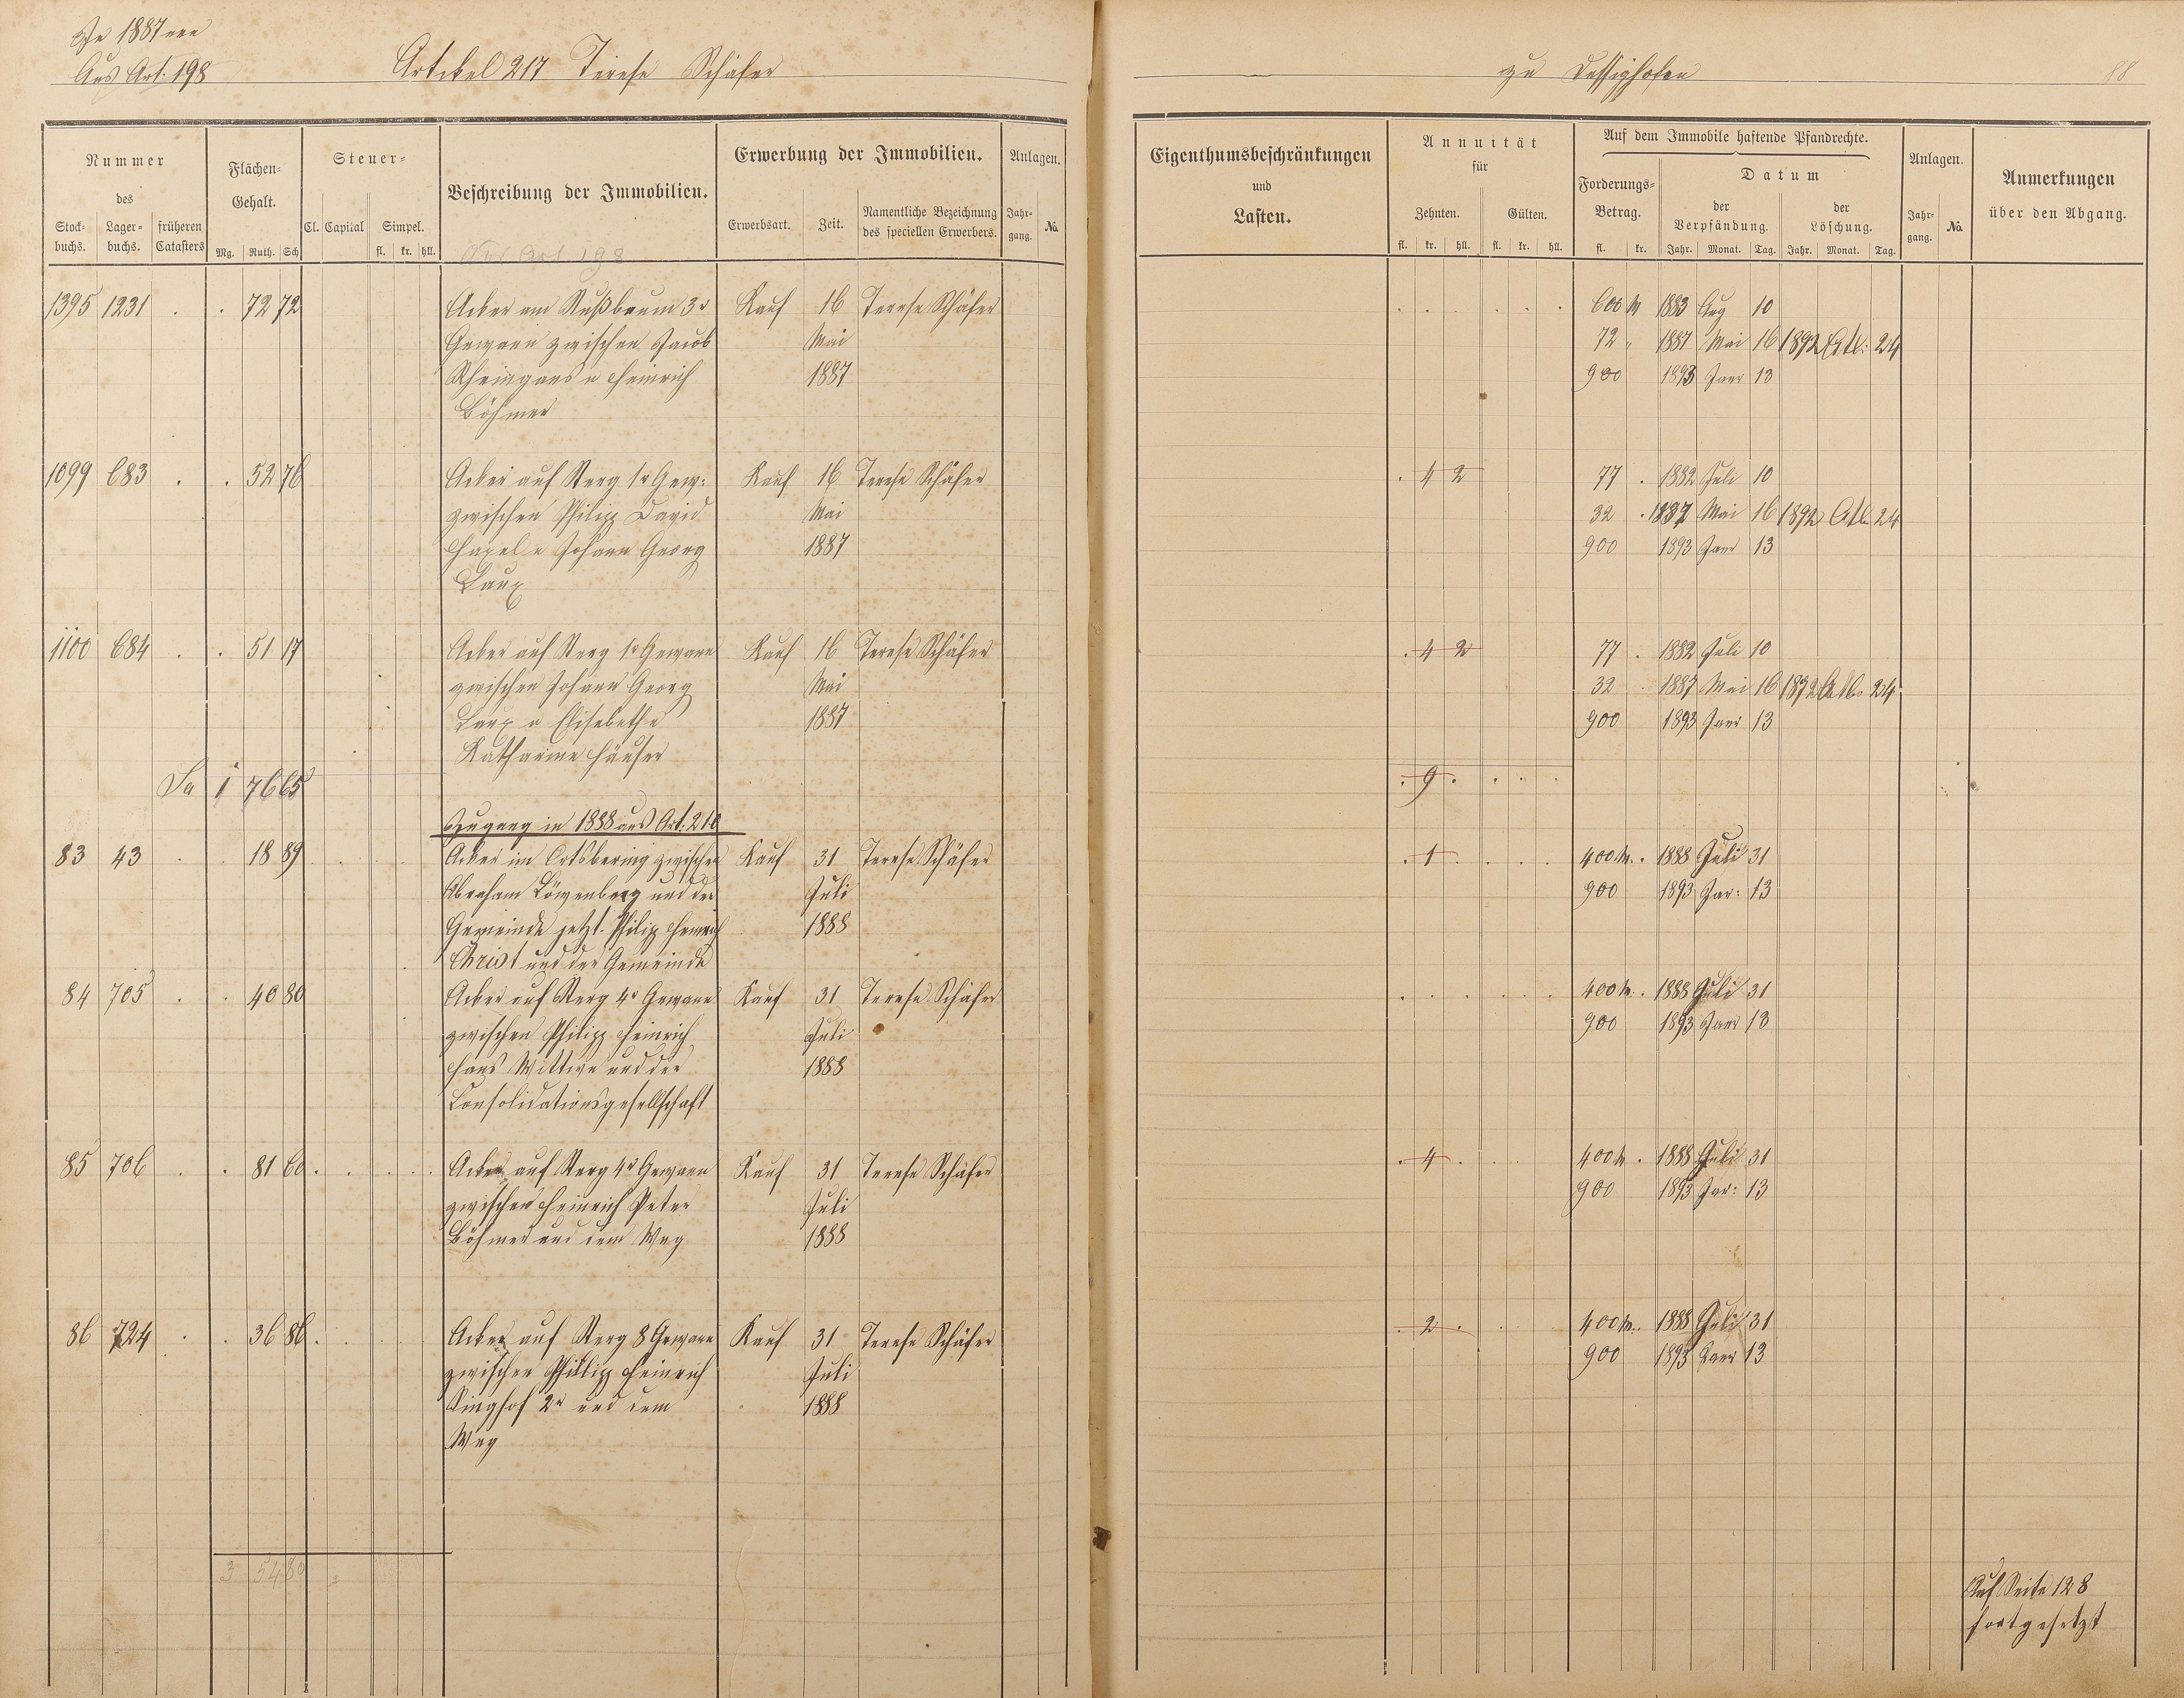 Zu 1887 neu
Aus Art. 198
Artikel 217 Terese Schäfer
zu Dessighofen
88
Nummer
des
Stock-
buchs.
Lager-
buchs.
früheren
Catasters
Flächen-
Gehalt.
Mg. Ruth. Sch
Steuer-
Cl. Capital
Simpel.
fl. kr. hll.
Beschreibung der Immobilien.
Aus Art 198
Erwerbung der Immobilien.
Erwerbsart.
Zeit.
Namentliche Bezeichnung
des speciellen Erwerbers.
Anlagen.
Jahr-
gang.
No.
Eigenthumsbeschränkungen
und
Lasten.
Annuität
für
Zehnten. Gülten.
fl. kr. hll. fl. kr. hll.
Auf dem Immobile haftende Pfandrechte.
Forderungs-
Betrag.
fl. kr.
Datum
der
Verpfändung.
Jahr. Monat. Tag.
der
Löschung.
Jahr. Monat. Tag.
Anlagen.
Jahr-
gang.
No.
Anmerkungen
über den Abgang.
1395 1231 . . 72 72 Acker am Nußbaum 3r Kauf 16 Terese Schäfer . . . . . . 600 M 1883 Aug 10
Gewann zwischen Jacob Mai 72 " 1887 Mai 16 1892 Octb: 24
Rheingans u Heinrich 1887 900 1893 Janr 13
Böhmer
1099 683 . . 52 76 Acker auf Sterg 1r Gew: Kauf 16 Terese Schäfer . 4 2 77 . 1882 Juli 10
zwischen Philipp David Mai 32 . 1887 Mai 16 1892 Octb. 24
Hapel u Johann Georg 1887 900 1893 Janr 13
Laux
1100 684 . . 51 17 Acker auf Sterg 1r Gewann Kauf 16 Terese Schäfer . 4 2 77 . 1882 Juli 10
zwischen Johann Georg Mai 32 . 1887 Mai 16 1892 Octb. 24
Laux u Elisabethe 1887 900 1893 Janr 13
Katharine Häuser
Sa 1 76 65 . 9 . . . .
Zugang in 1888 aus Art: 210
83 43 . . 18 89 Acker im Ortsbering zwischen Kauf 31 Terese Schäfer . 1 . . . . 400 M. . 1888 Juli 31
Abraham Löwenberg und der Juli 900 1893 Jar: 13
Gemeinde jetzt Philipp Heinrich 1888
Christ und der Gemeinde
84 705 . . 40 80 Acker auf Sterg 4r Gewann Kauf 31 Terese Schäfer . . . . . . 400 M. . 1888 Juli 31
zwischen Philipp Heinrich Juli 900 1893 Janr 13
Wittwe und der 1888
Consolidationsgesellschaft
85 706 . . 81 60 . . . . Acker auf Sterg 4r Gewann Kauf 31 Terese Schäfer . 4 . . . 400 M . 1888 Juli 31
zwischen Heinrich Peter Juli 900 1893 Jar: 13
Böhmer und dem Weg 1888
86 724 . . 36 86 . . . . Acker auf Sterg 8 Gewann Kauf 31 Terese Schäfer . 2 . . . 400 M. . 1888 Juli 31
zwischen Philipp Heinrich Juli 900 1893 Janr 13
Singhof 2r und dem 1888
Weg
3 54 80
Auf Seite 128
fortgesetzt